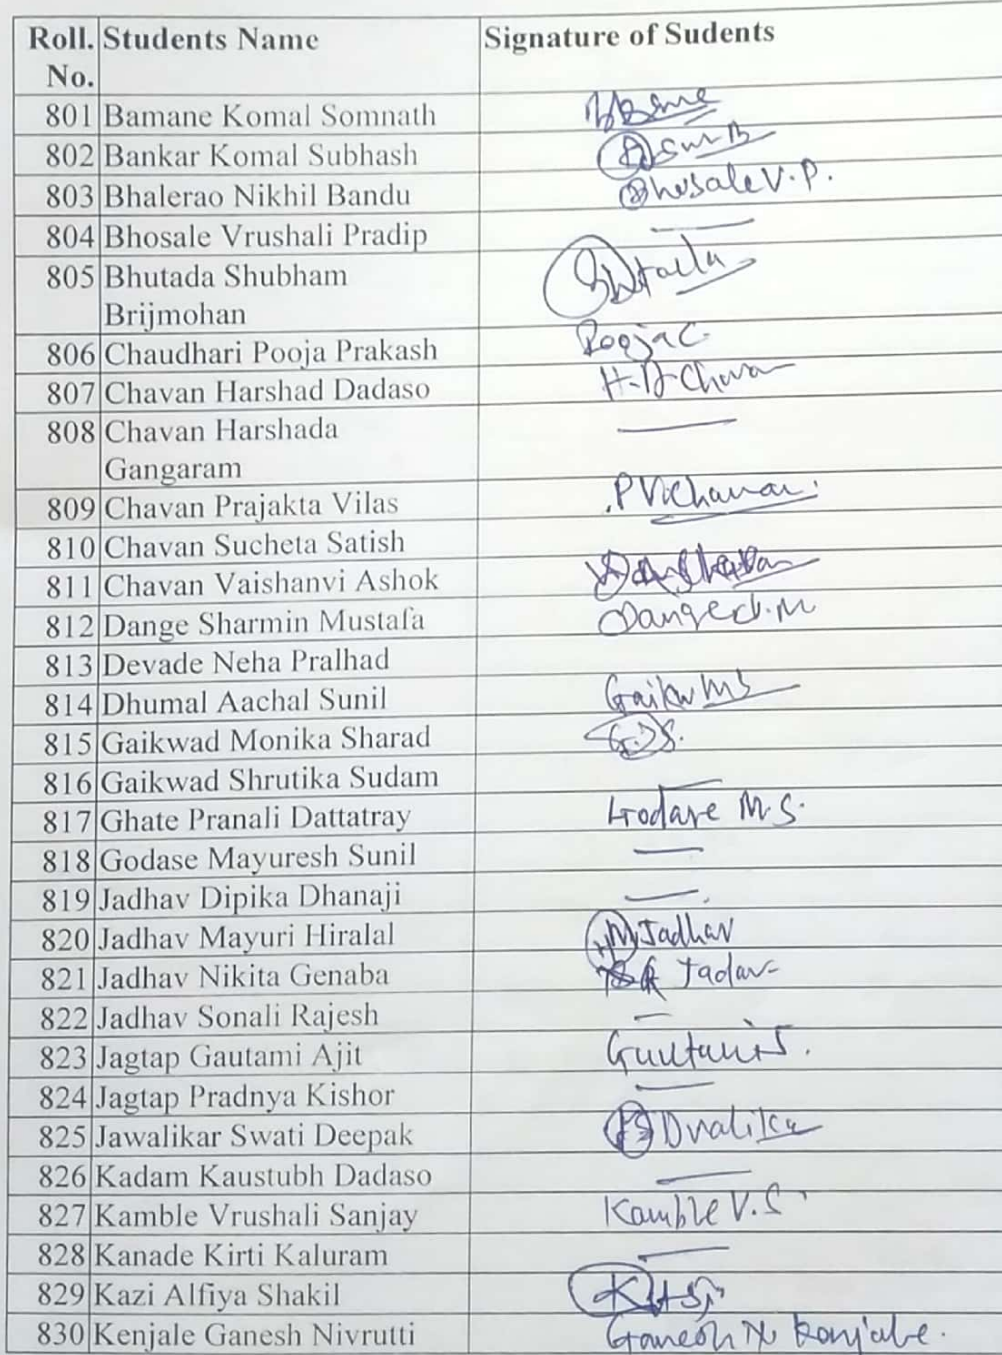 Roll. Students Name Signature of Sudents
No.
801 Bamane Komal Somnath
802 Bankar Komal Subhash
803 Bhalerao Nikhil Bandu Bhosale V. P.
804 Bhosale Vrushali Pradip
805 Bhutada Shubham
Brijmohan
806 Chaudhari Pooja Prakash Pooja C.
807 Chavan Harshad Dadaso
808 Chavan Harshada
Gangaram
809 Chavan Prajakta Vilas
810 Chavan Sucheta Satish
811 Chavan Vaishanvi Ashok
812 Dange Sharmin Mustafa
813 Devade Neha Pralhad
814 Dhumal Aachal Sunil
815 Gaikwad Monika Sharad
816 Gaikwad Shrutika Sudam
817 Ghate Pranali Dattatray M. S.
818 Godase Mayuresh Sunil
819 Jadhav Dipika Dhanaji
820 Jadhav Mayuri Hiralal Jadhav
821 Jadhav Nikita Genaba
822 Jadhav Sonali Rajesh
823 Jagtap Gautami Ajit
824 Jagtap Pradnya Kishor
825 Jawalikar Swati Deepak
826 Kadam Kaustubh Dadaso
827 Kamble Vrushali Sanjay Kamble V. S.
828 Kanade Kirti Kaluram
829 Kazi Alfiya Shakil
830 Kenjale Ganesh Nivrutti Ganesh N